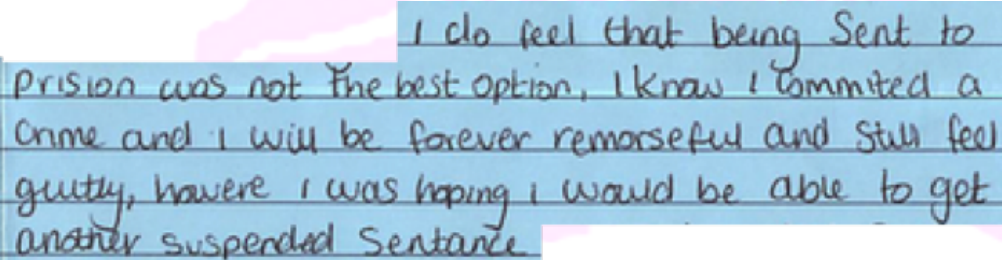 I do feel that being Sent to
prision was not the best option, I know I commited a
crime and I will be forever remorseful and still feel
guilty, howere I was hoping i would be able to get
another suspended Sentance